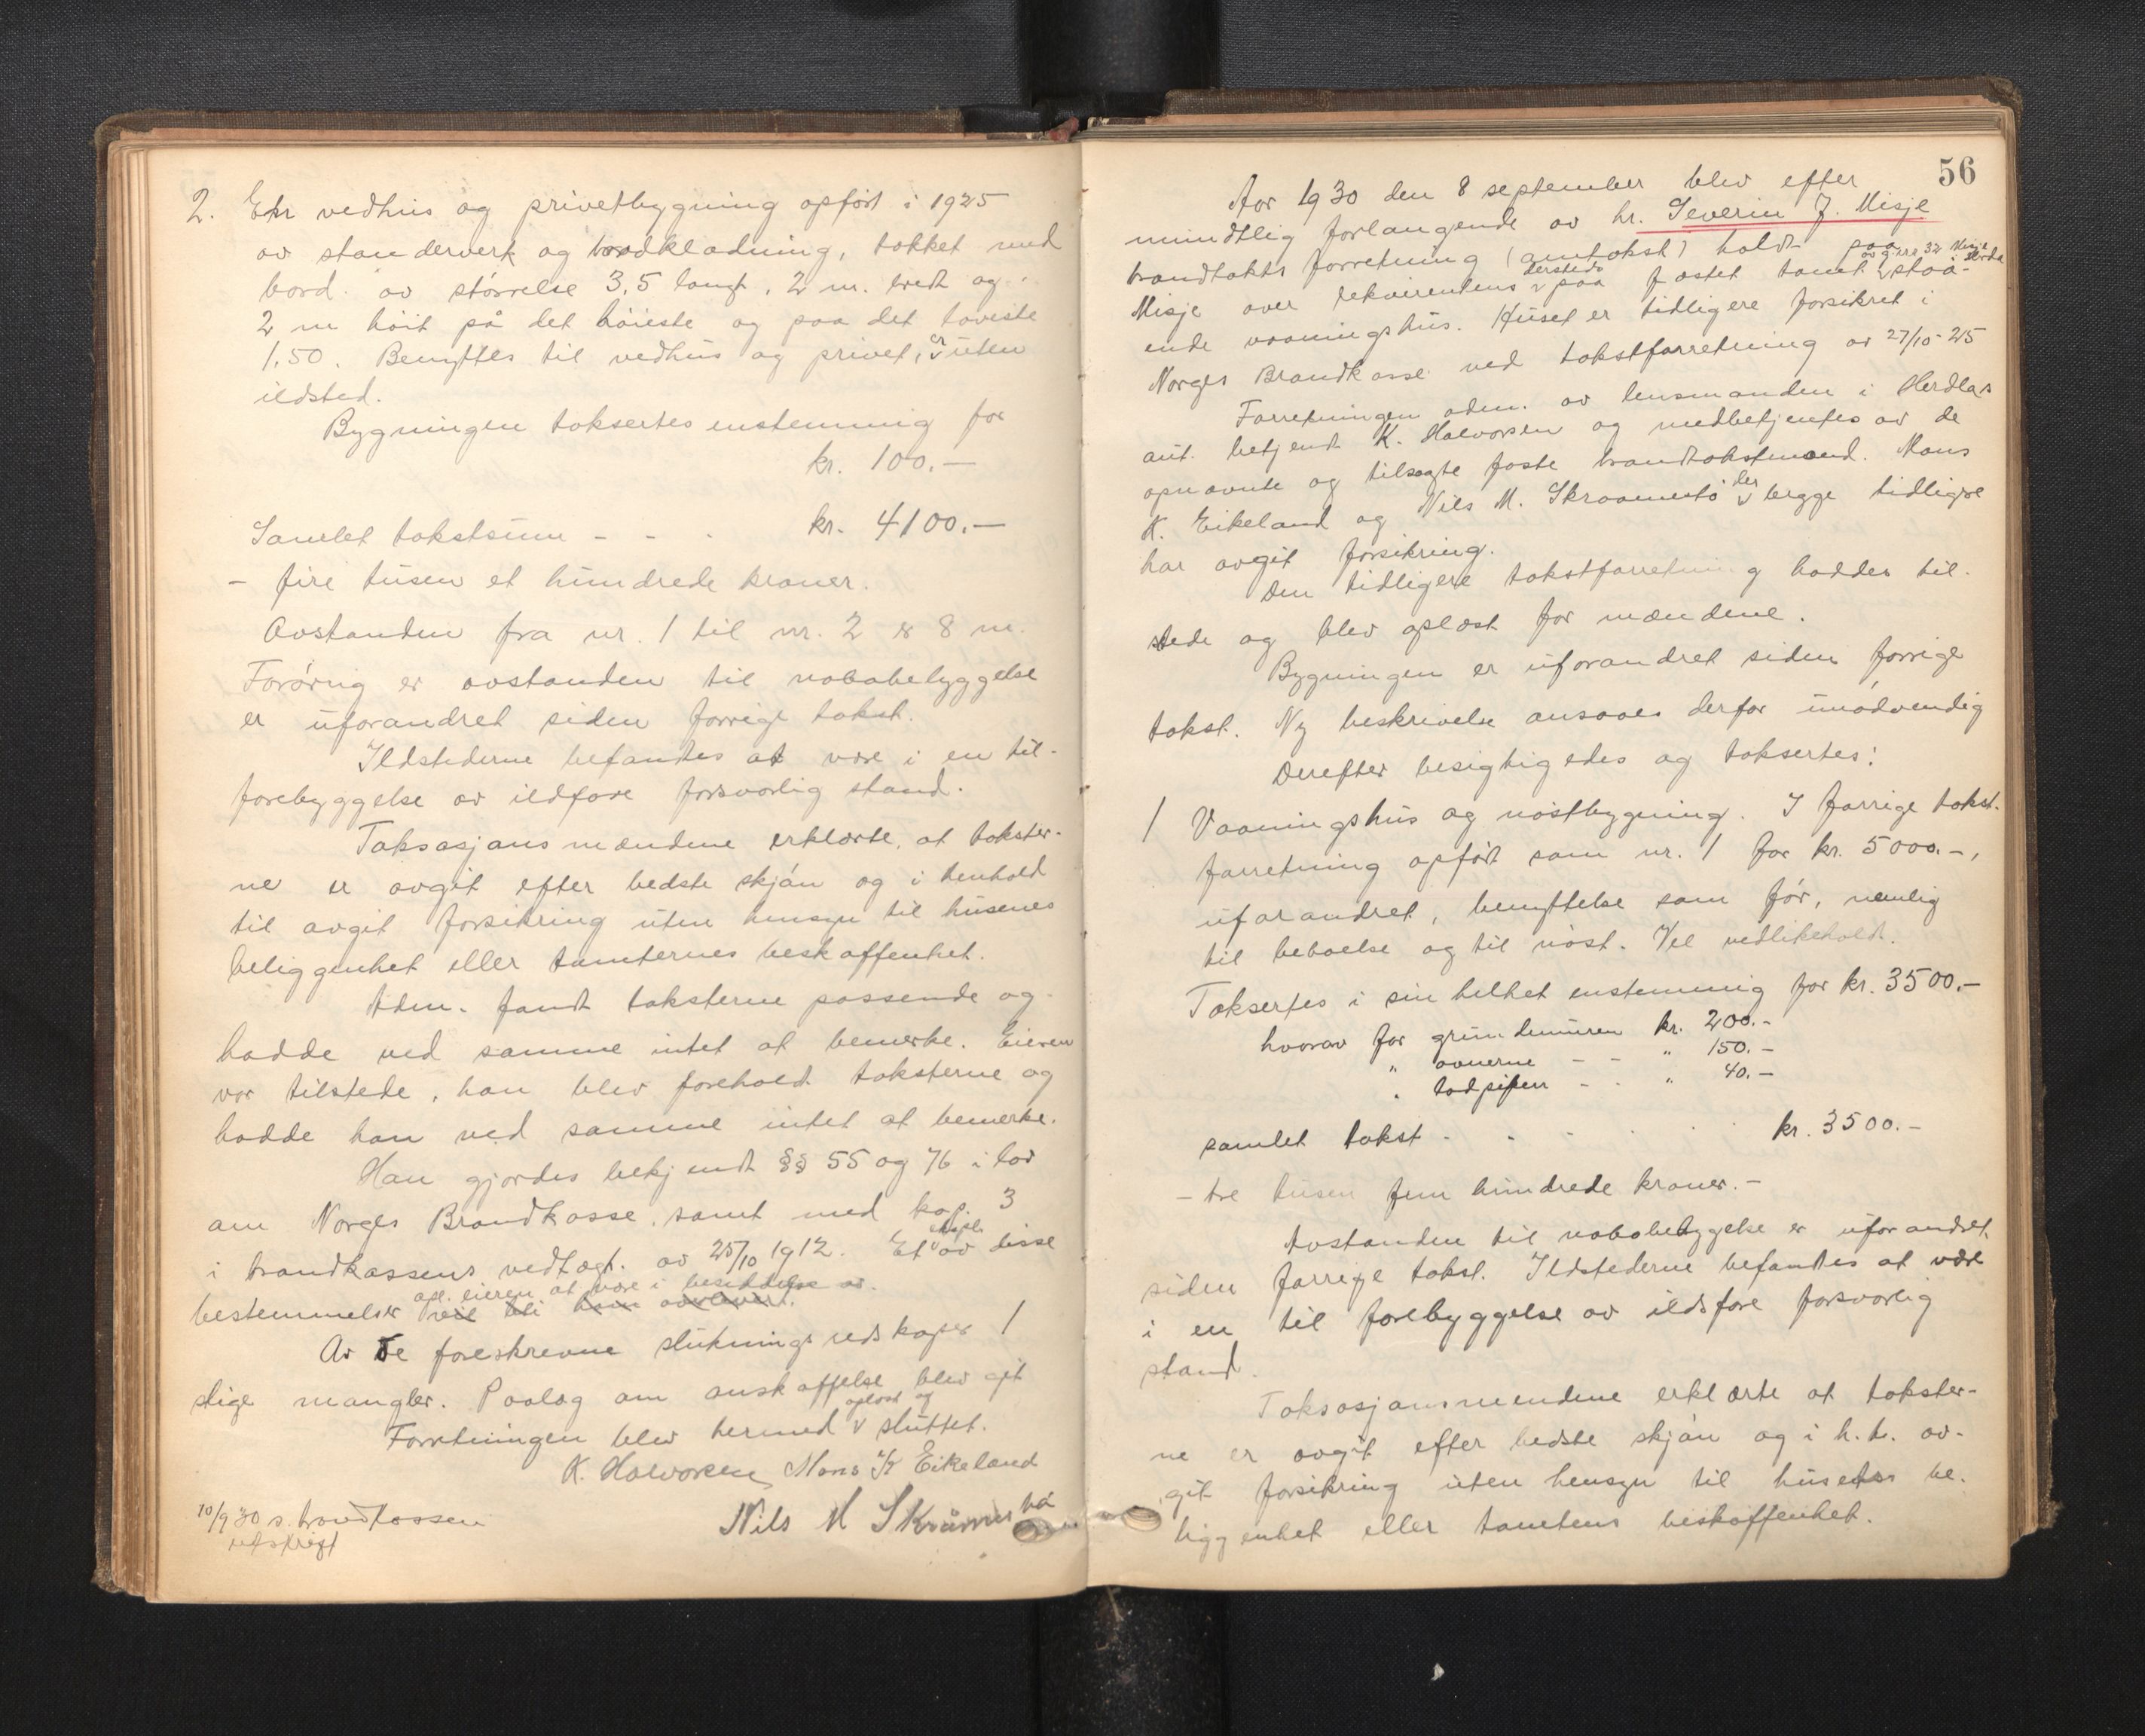 2. Ekr vedhus og privetbygning opført i 1925
av standerverk og bordklædning, tækket med
bord. av størrelse 3,5 langt, 2 m. bredt og
2 m høit på det høieste og paa det laveste
1,50. Benyttes til vedhus og privet, er uten
ildsted.
Bygningen taksertes enstemmig for
kr. 100.-
Samlet takstsum - - - kr. 4100.-
- fire tusen et hundrede kroner.
Avstanden fra nr. 1 til nr. 2 er 8 m.
Forøvrig er avstanden til nabobebyggelse
er uforandret siden forrige takst.
Ildstederne befandtes at være i en til-
forebyggelse av ildfare forsvarlig stand.
Taksasjonsmændene erklærte, at takster-
ne er avgit efter bedste skjøn og i henhold
til avgit forsikring uten hensyn til husenes
beliggenhet eller tomternes beskaffenhet.
Adm. fandt taksterne passende og
hadde ved samme intet at bemerke. Eieren
var tilstede, han blev foreholdt taksterne og
hadde han ved samme intet at bemerke.
Han gjordes bekjendt §§ 55 og 76 i lov
om Norges Brandkasse, samt med kap. 3
i brandkassens vedtægt. av 25/10 1912. Et expl. av disse
bestemmelser opl. eieren at være i besiddelse av.
Av de foreskrevne sluknings redskaper 1
stige mangler. Paalæg om anskaffelse blev git
Forretningen blev hermed oplæst og sluttet.
K. Halvorsen Mons K Eikeland
Nils M Skråmestø
10/9 30 s. brandkassen
utskrift
56
Aar 1930 den 8 september blev efter
mundtlig forlangende av hr. Severin J. Misje
brandtakst forretning (omtakst) holdt paa
Misje over rekvirentens dersteds paa fæstet tomt av g.nr. 32 Misje i Herdla staa-
ende vaaningshus. Huset er tidligere forsikret i
Norges Brandkasse ved takstforretning av 27/10-25
Forretningen adm. av lensmanden i Herdlas
aut. betjent K. Halvorsen og medbetjentes av de
opnævnte og tilsagte faste brandtakstmænd. Mons
K. Eikeland og Nils M. Skraamestø der begge tidligre
har avgit forsikring.
Den tidligere takstforretning haddes til-
stede og blev oplæst for mændene.
Bygningen er uforandret siden forrige
takst. Ny beskrivelse ansaaes derfor unødvendig
Derefter besigtigedes og taksertes:
1 Vaaningshus og nøstbygning. I forrige takst-
forretning opført som nr. 1 for kr. 5000.-,
uforandret, benyttelse som før, nemlig
til beboelse og til nøst. Vel vedlikeholdt.
Taksertes i sin helhet enstemmig for kr. 3500.-
hvorav for grundmuren kr. 200.-
" ovnerne - - " 150.-
" lodpipen - - " 40.-
samlet takst - - - - - kr. 3500.-
- tre tusen fem hundrede kroner. -
Avstanden til nabobebyggelse er uforandret
siden forrige takst. Ildstederne befandtes at være
i en til forebyggelse av ildsfare forsvarlig
stand.
Taksasjonsmendene erklærte at takster-
ne er avgit efter bedste skjøn og i h.t. av-
git forsikring uten hensyn til husets be-
liggenhet eller tomtens beskaffenhet.